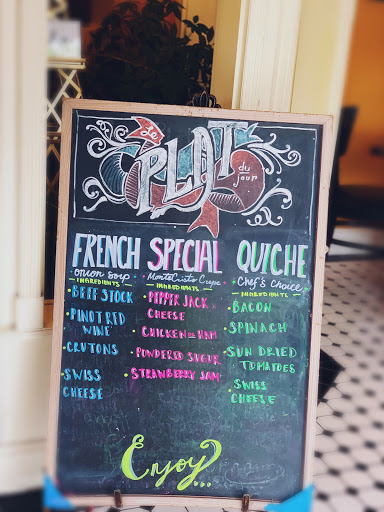 Le
PLAT
du
jour
FRENCH
onion soup
INGREDIENTS
• BEEF STOCK
• PINOT RED
WINE
• CRUTONS
• SWISS
CHEESE
SPECIAL
MonteCristo Crepe
INGREDIENTS
• PEPPER JACK
CHEESE
• CHICKEN or HAM
• POWDERED SUGAR
• STRAWBERRY JAM
QUICHE
Chef's Choice
INGREDIENTS
• BACON
• SPINACH
• SUN DRIED
TOMATOES
• SWISS
CHEESE
Enjoy...